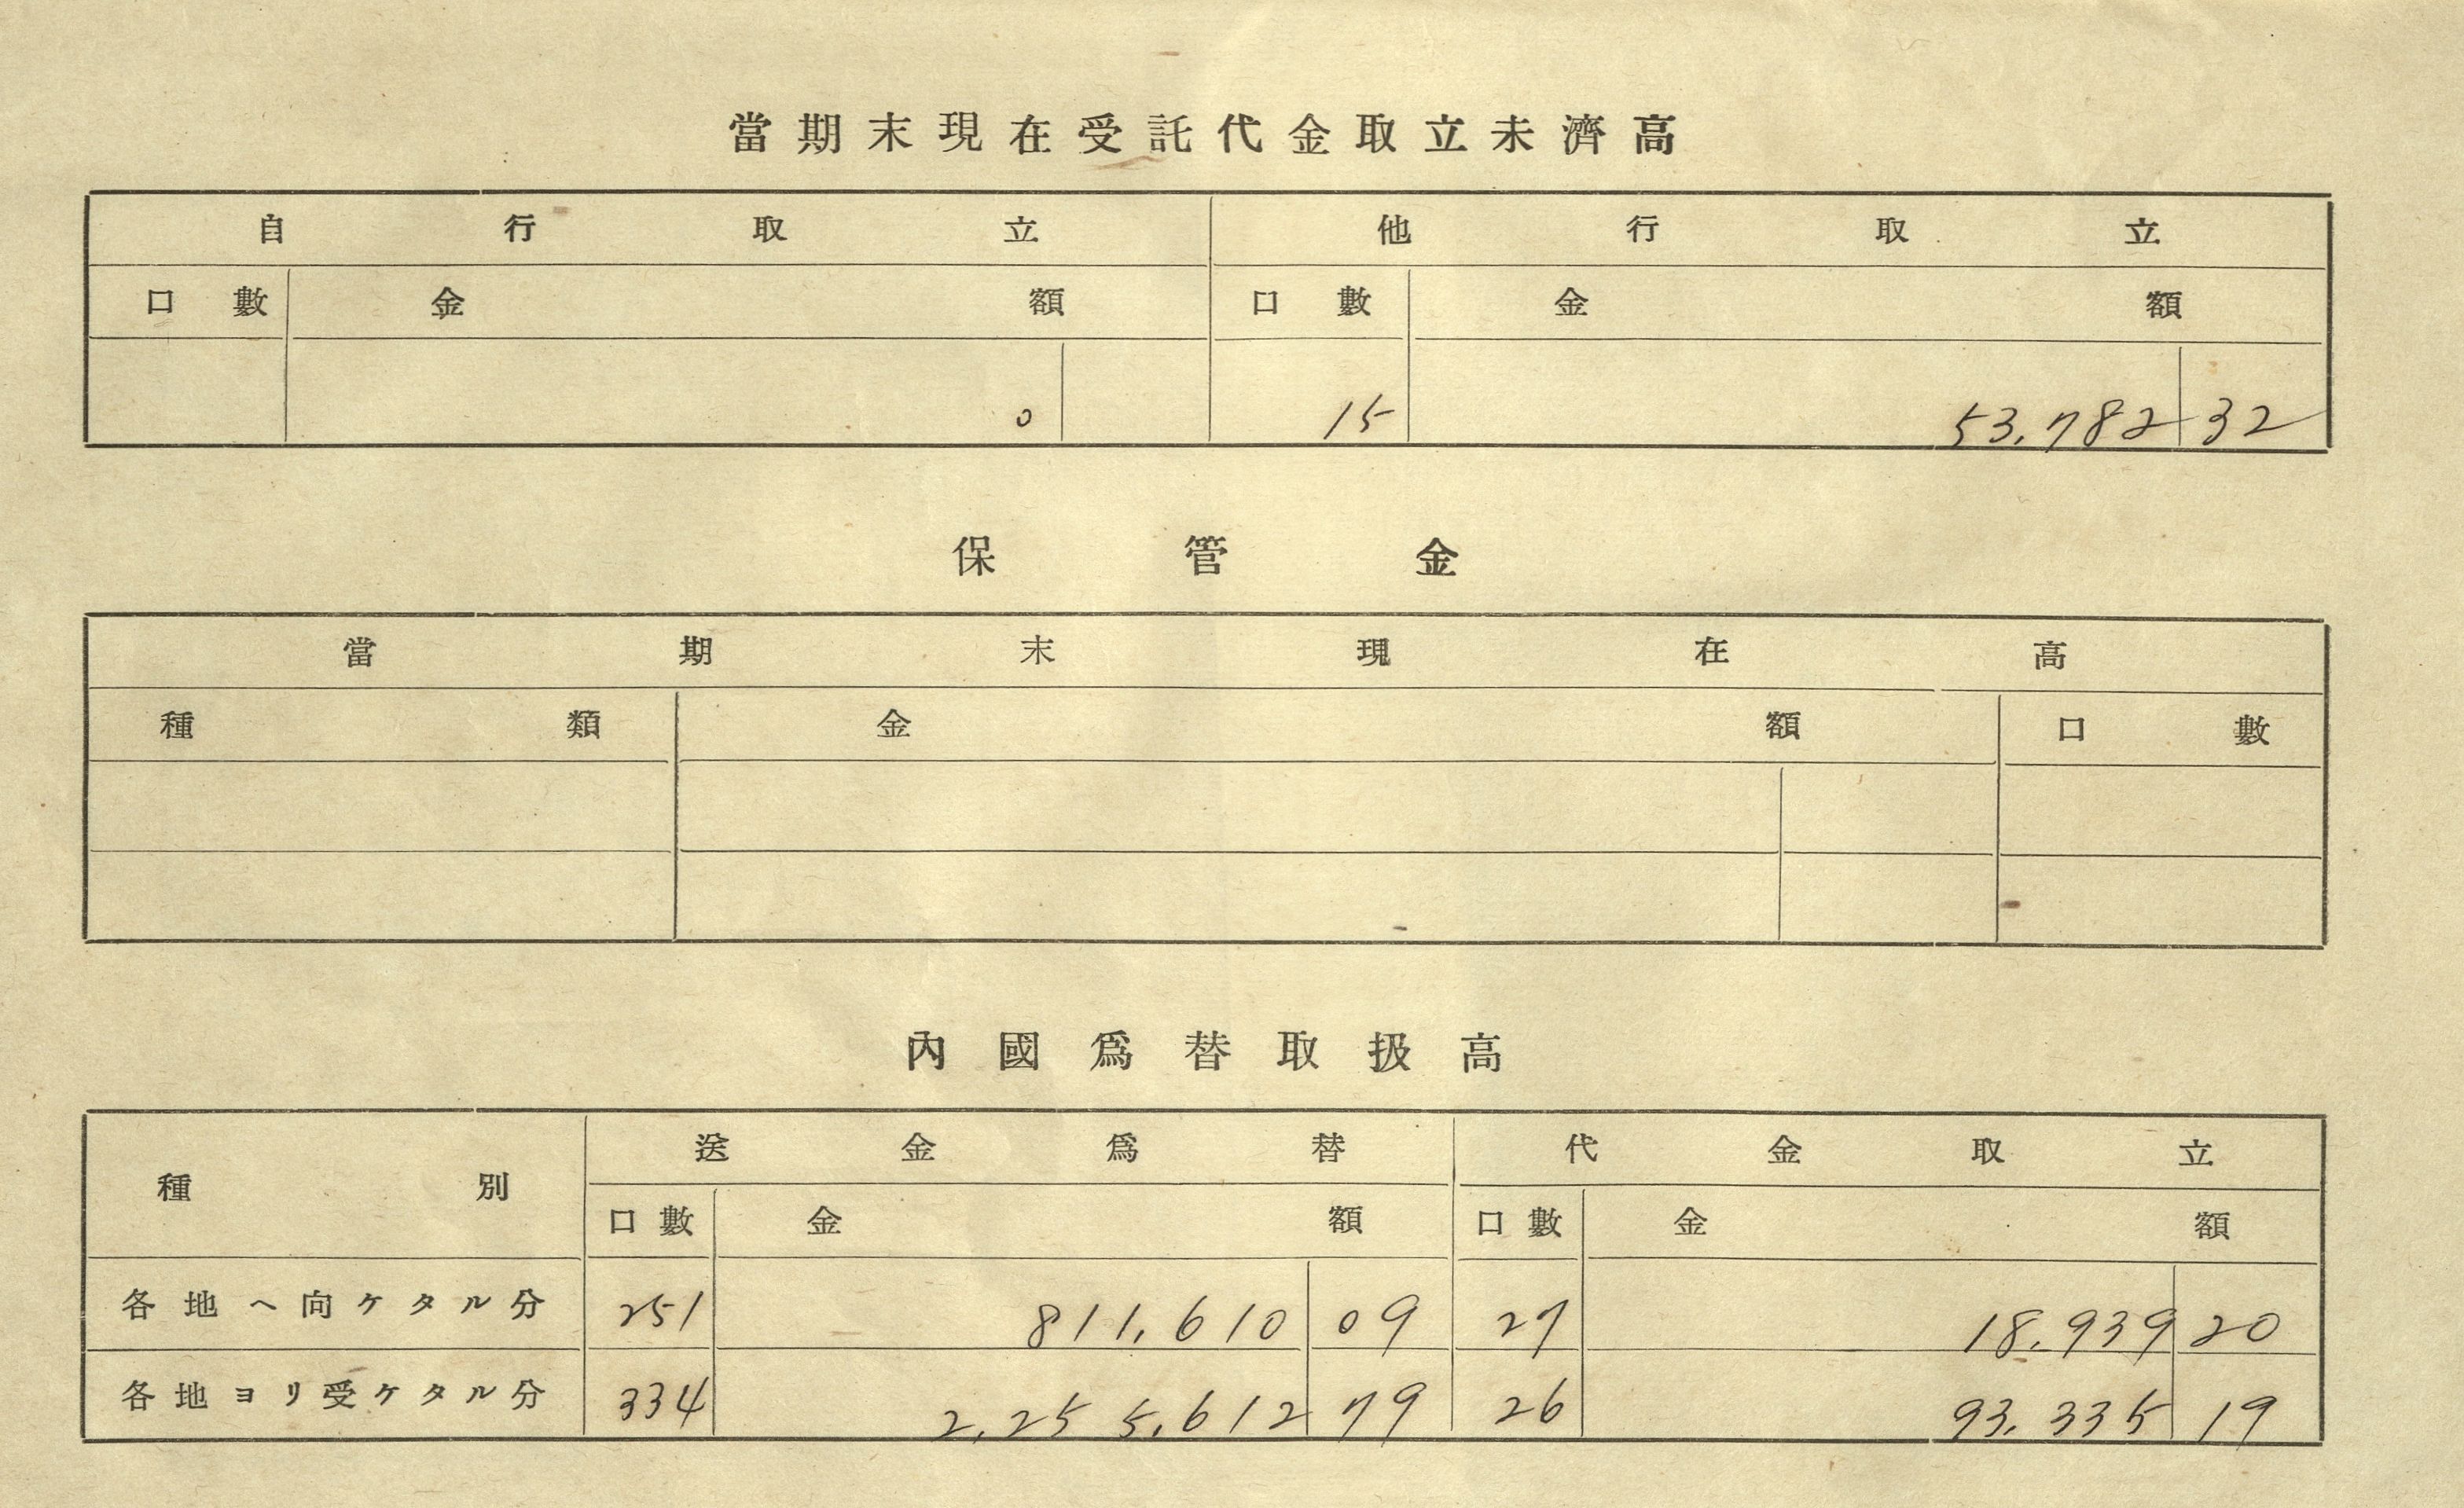 當期末現在受託代金取立未濟高
自行取立 他行取立
口數 金額 口數 金額
0 15 53,782 32
保管金
當期末現在高
種類 金額 口數
內國爲替取扱高
種別 送金爲替 代金取立
口數 金額 口數 金額
各地ヘ向ケタル分 251 811,610 09 27 18,939 20
各地ヨリ受ケタル分 334 2,255,612 79 26 93,335 19